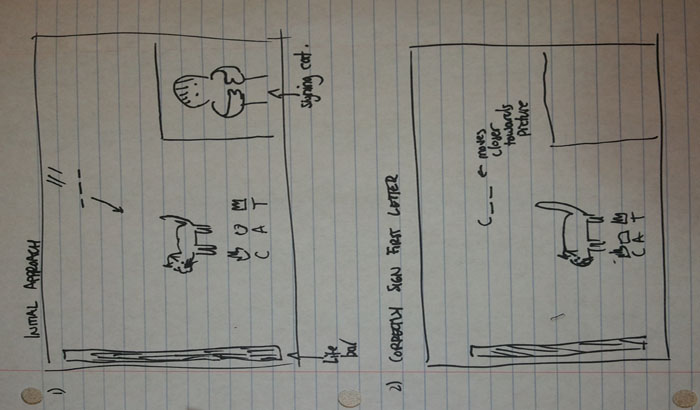 1) INITIAL APPROACH
C A T
signing cat.
life
bar
2) CORRECTLY SIGN FIRST LETTER
C _ _ ← moves
closer
towards
picture
C A T